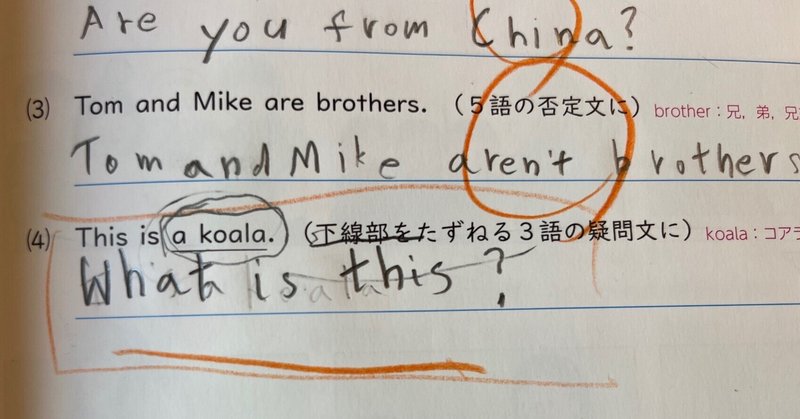 Are you from China?
(3) Tom and Mike are brothers. (5語の否定文に) brother:兄, 弟, 兄
Tom and Mike aren't brothers
(4) This is a koala. (下線部をたずねる3語の疑問文に) koala:コアラ
What is this?